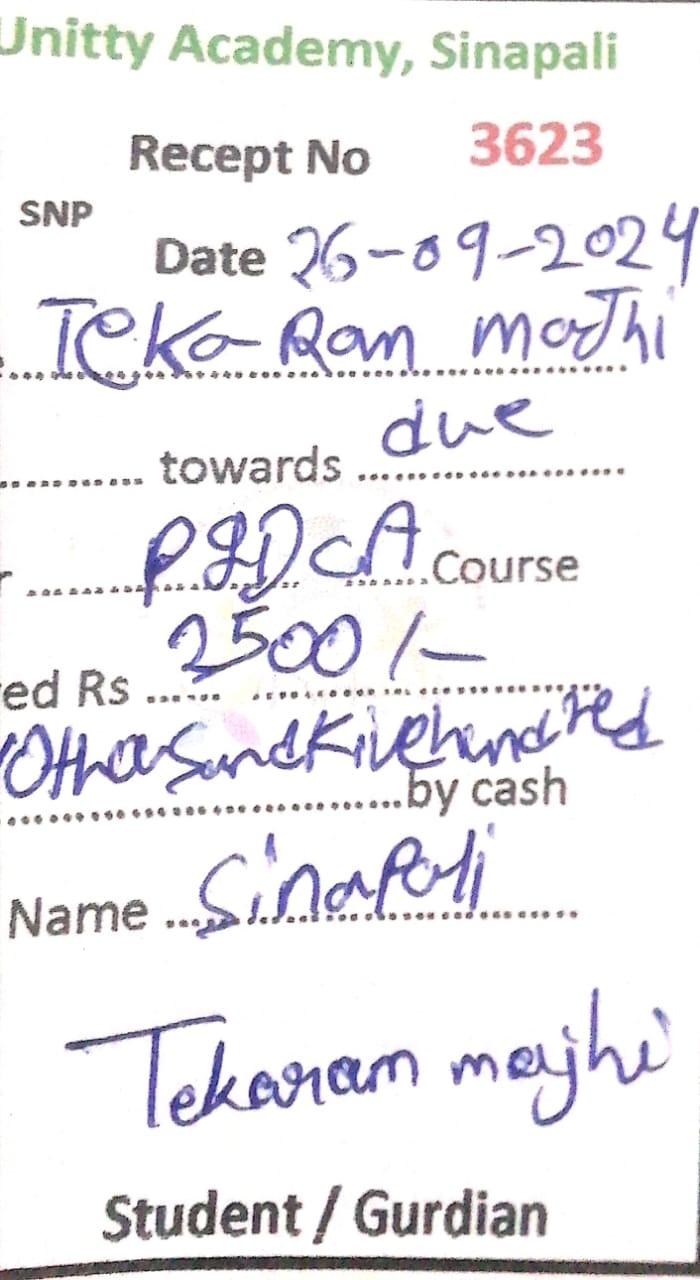 Unitty Academy, Sinapali
Recept No 3623
SNP
Date 26-09-2024
Teka Ram majhi
............ towards due ........................
r ........................ PGDCA ....... Course
ed Rs ...... 2500/- ........................
.................................by cash
Name .... Sinapali ........................
Tekaram majhi
Student / Gurdian